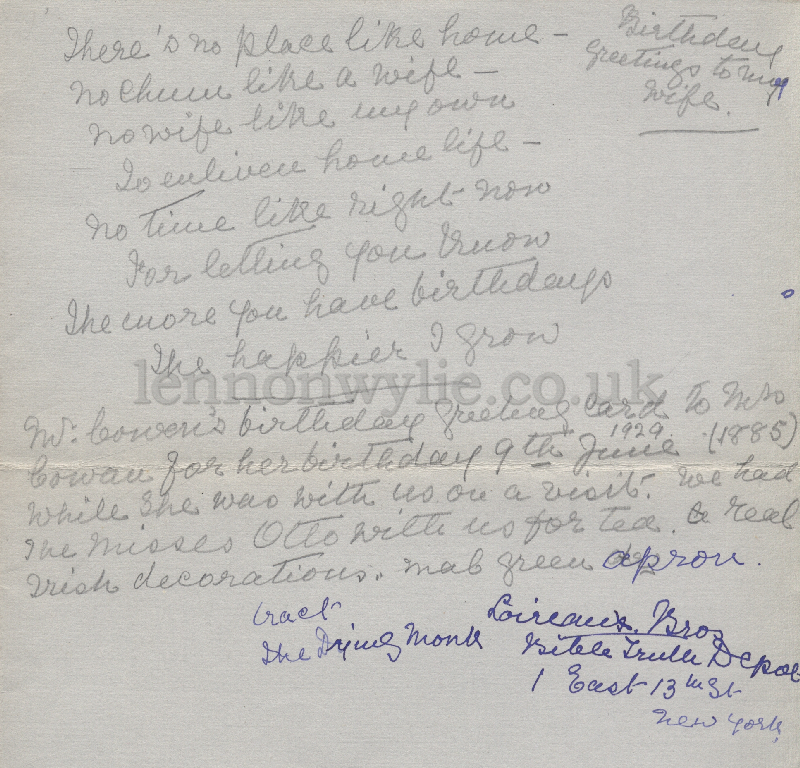 There's no place like home –
no chum like a wife –
no wife like my own
To enliven home life –
no time like right now
For letting you know
The more you have birthdays
The happier I grow
Birthday
greetings to my
wife.
lennonwylie.co.uk
Mr. Cowan's birthday greeting card to Mrs
Cowan for her birthday 9th June 1929 (1885)
while she was with us on a visit. We had
the Misses Otto with us for tea. a real
Irish decorations. mab green apron.
tract
The Dying Monk
Bros
Bible Truth Depot
1 East 13th St
New York